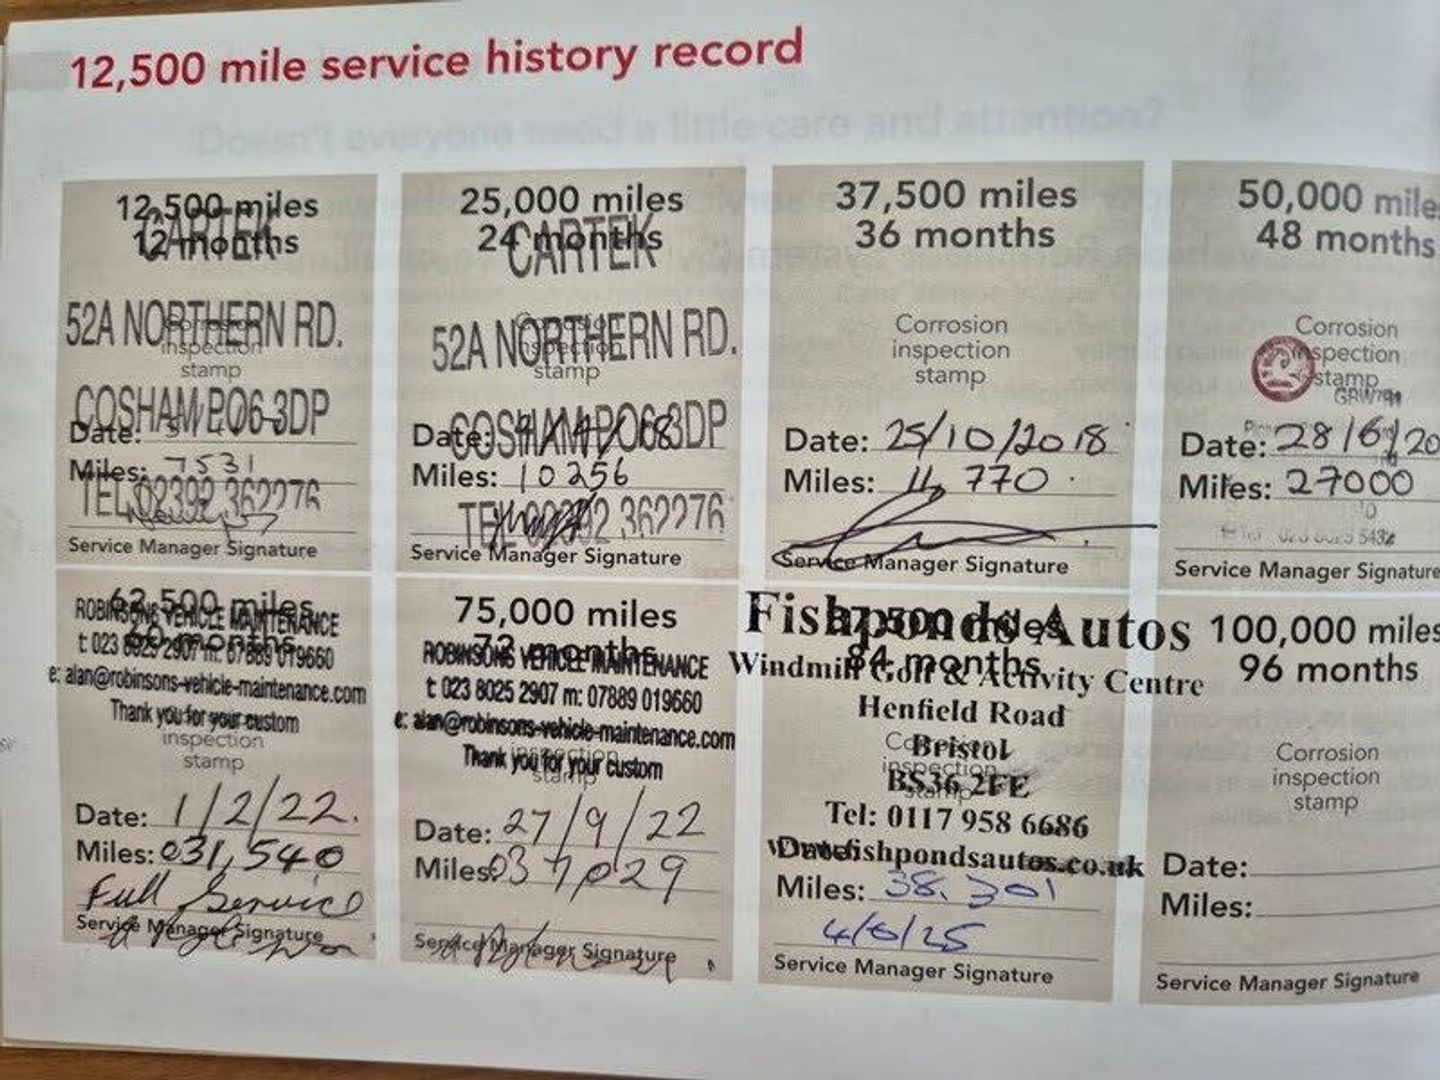 12,500 mile service history record
12,500 miles
12 months
CARTEK
52A NORTHERN RD.
inspection
stamp
COSHAM PO6 3DP
Date:
Miles: 7531
TEL 02392 362276
Service Manager Signature
25,000 miles
24 months
CARTEK
52A NORTHERN RD.
Corrosion
inspection
stamp
COSHAM PO6 3DP
Date: 9/4/18
Miles: 10256
TEL 02392 362276
Service Manager Signature
37,500 miles
36 months
Corrosion
inspection
stamp
Date: 25/10/2018
Miles: 11,770
Service Manager Signature
50,000 mile
48 months
Corrosion
inspection
stamp
Date: 28/6/20
Miles: 27000
Service Manager Signature
62,500 miles
60 months
ROBINSONS VEHICLE MAINTENANCE
t: 023 8025 2907 m: 07889 019660
e: alan@robinsons-vehicle-maintenance.com
Thank you for your custom
inspection
stamp
Date: 1/2/22.
Miles: 031,540
Full Service
Service Manager Signature
75,000 miles
72 months
ROBINSONS VEHICLE MAINTENANCE
t: 023 8025 2907 m: 07889 019660
e: alan@robinsons-vehicle-maintenance.com
Thank you for your custom
inspection
stamp
Date: 27/9/22
Miles: 037,029
Service Manager Signature
87,500 miles
84 months
Fishponds Autos
Windmill Golf & Activity Centre
Henfield Road
Bristol
Corrosion
inspection
stamp
BS36 2FE
Tel: 0117 958 6686
www.fishpondsautos.co.uk
Date:
Miles: 38.301
4/6/25
Service Manager Signature
100,000 miles
96 months
Corrosion
inspection
stamp
Date:
Miles:
Service Manager Signature